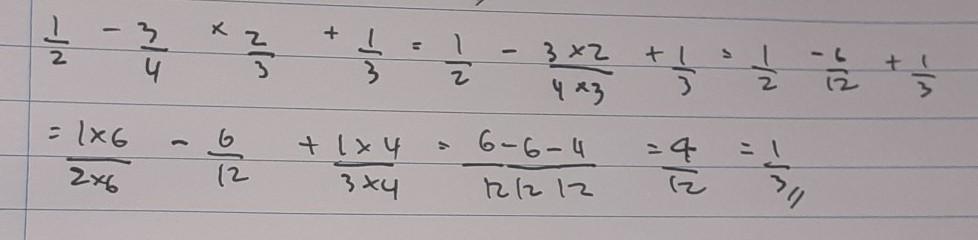 1/2 - 3/4 × 2/3 + 1/3 = 1/2 - (3×2)/(4×3) + 1/3 = 1/2 - 6/12 + 1/3
= (1×6)/(2×6) - 6/12 + (1×4)/(3×4) = (6-6-4)/(12 12 12) = 4/12 = 1/3 //